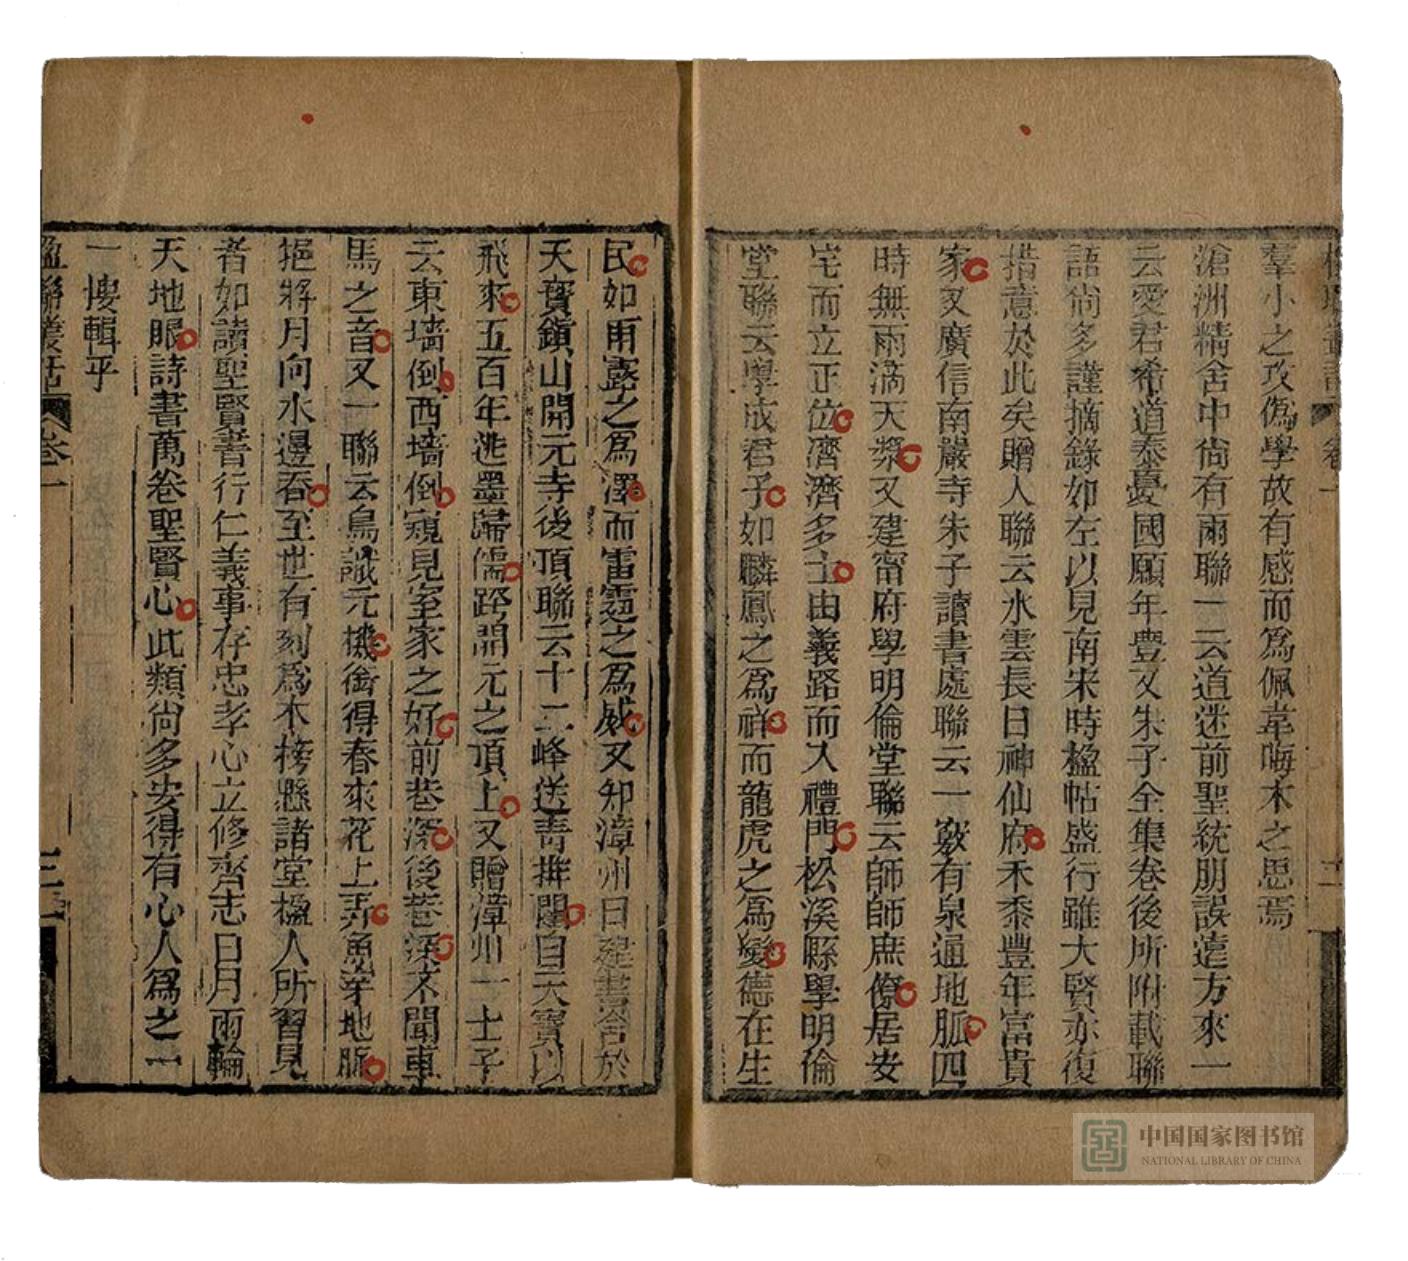 羣小之攻僞學故有感而爲佩韋晦木之思焉
滄洲精舍中尙有兩聯一云道迷前聖統朋誤遠方來一
云愛君希道泰憂國願年豊又朱子全集卷後所附載聯
語尙多謹摘錄如左以見南宋時楹帖盛行雖大賢亦復
措意於此矣贈人聯云水雲長日神仙府禾黍豊年富貴
家又廣信南巖寺朱子讀書處聯云一竅有泉通地脈四
時無雨滴天漿又建甯府學明倫堂聯云師師庶僚居安
宅而立正位濟濟多士由義路而入禮門松溪縣學明倫
堂聯云學成君子如麟鳳之爲祥而龍虎之爲變德在生
民如雨露之爲澤而雷霆之爲威又知漳州日建書舍於
天寳鎭山開元寺後頂聯云十二峰送靑排闥自天寳以
飛來五百年逃墨歸儒跨開元之頂上又贈漳州一士子
云東墻倒西墻倒窺見室家之好前巷深後巷深不聞車
馬之音又一聯云鳥識元機銜得春來花上弄魚穿地脈
挹將月向水邊吞至世有刻爲木榜懸諸堂楹人所習見
者如讀聖賢書行仁義事存忠孝心立修齊志日月兩輪
天地眼詩書萬卷聖賢心此類尙多安得有心人爲之一
一搜輯乎
楹聯叢話 卷一 三
中国国家图书馆
NATIONAL LIBRARY OF CHINA